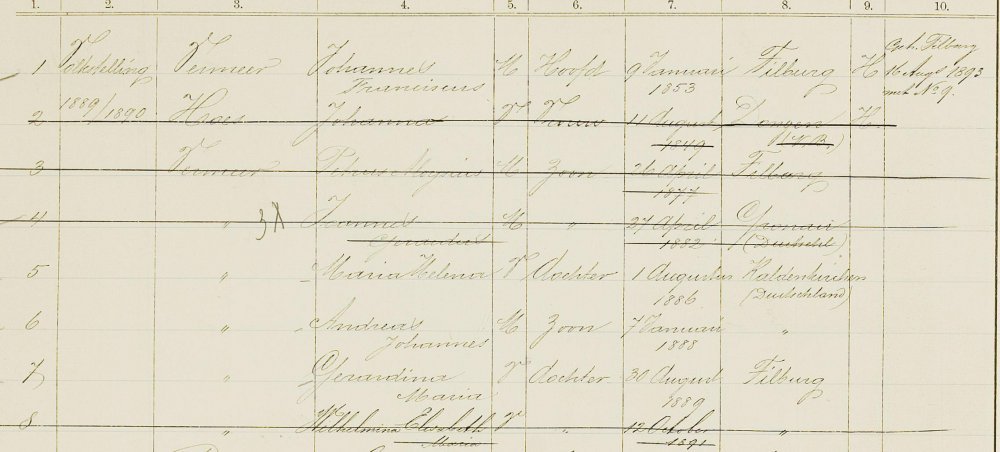 1. 2. 3. 4. 5. 6. 7. 8. 9. 10.
1 Volkstelling Vermeer Johannes M Hoofd 9 Januari Tilburg H Geh. Tilburg
Franciscus 1853 16 Augs 1893
1889/1890 met No 9.
2 Haes Johanna V Vrouw 11 August Dongen H.
1849 (N.B.)
3 Vermeer Petrus M Zoon 26 April Tilburg
1877
4 " Joannes M " 27 April
Gerardus 1882 (Deutschl)
5 " Maria Helena V Dochter 1 Augustus Kaldenkirchen
1886 (Deutschland)
6 " Andreas M Zoon 7 Januari "
Johannes 1888
7 " Gerardina V Dochter 30 August Tilburg
Maria 1889
8 " Wilhelmina Elisabeth V " 12 October "
Maria 1891